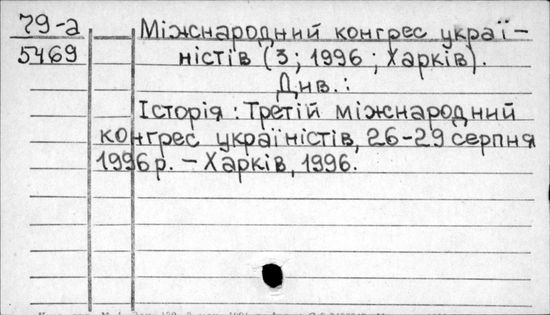 79-а
5469
Міжнародний конгрес украї-
ністів (3; 1996; Харків).
Див.:
Історія: Третій міжнародний
конгрес україністів, 26-29 серпня
1996р. - Харків, 1996.